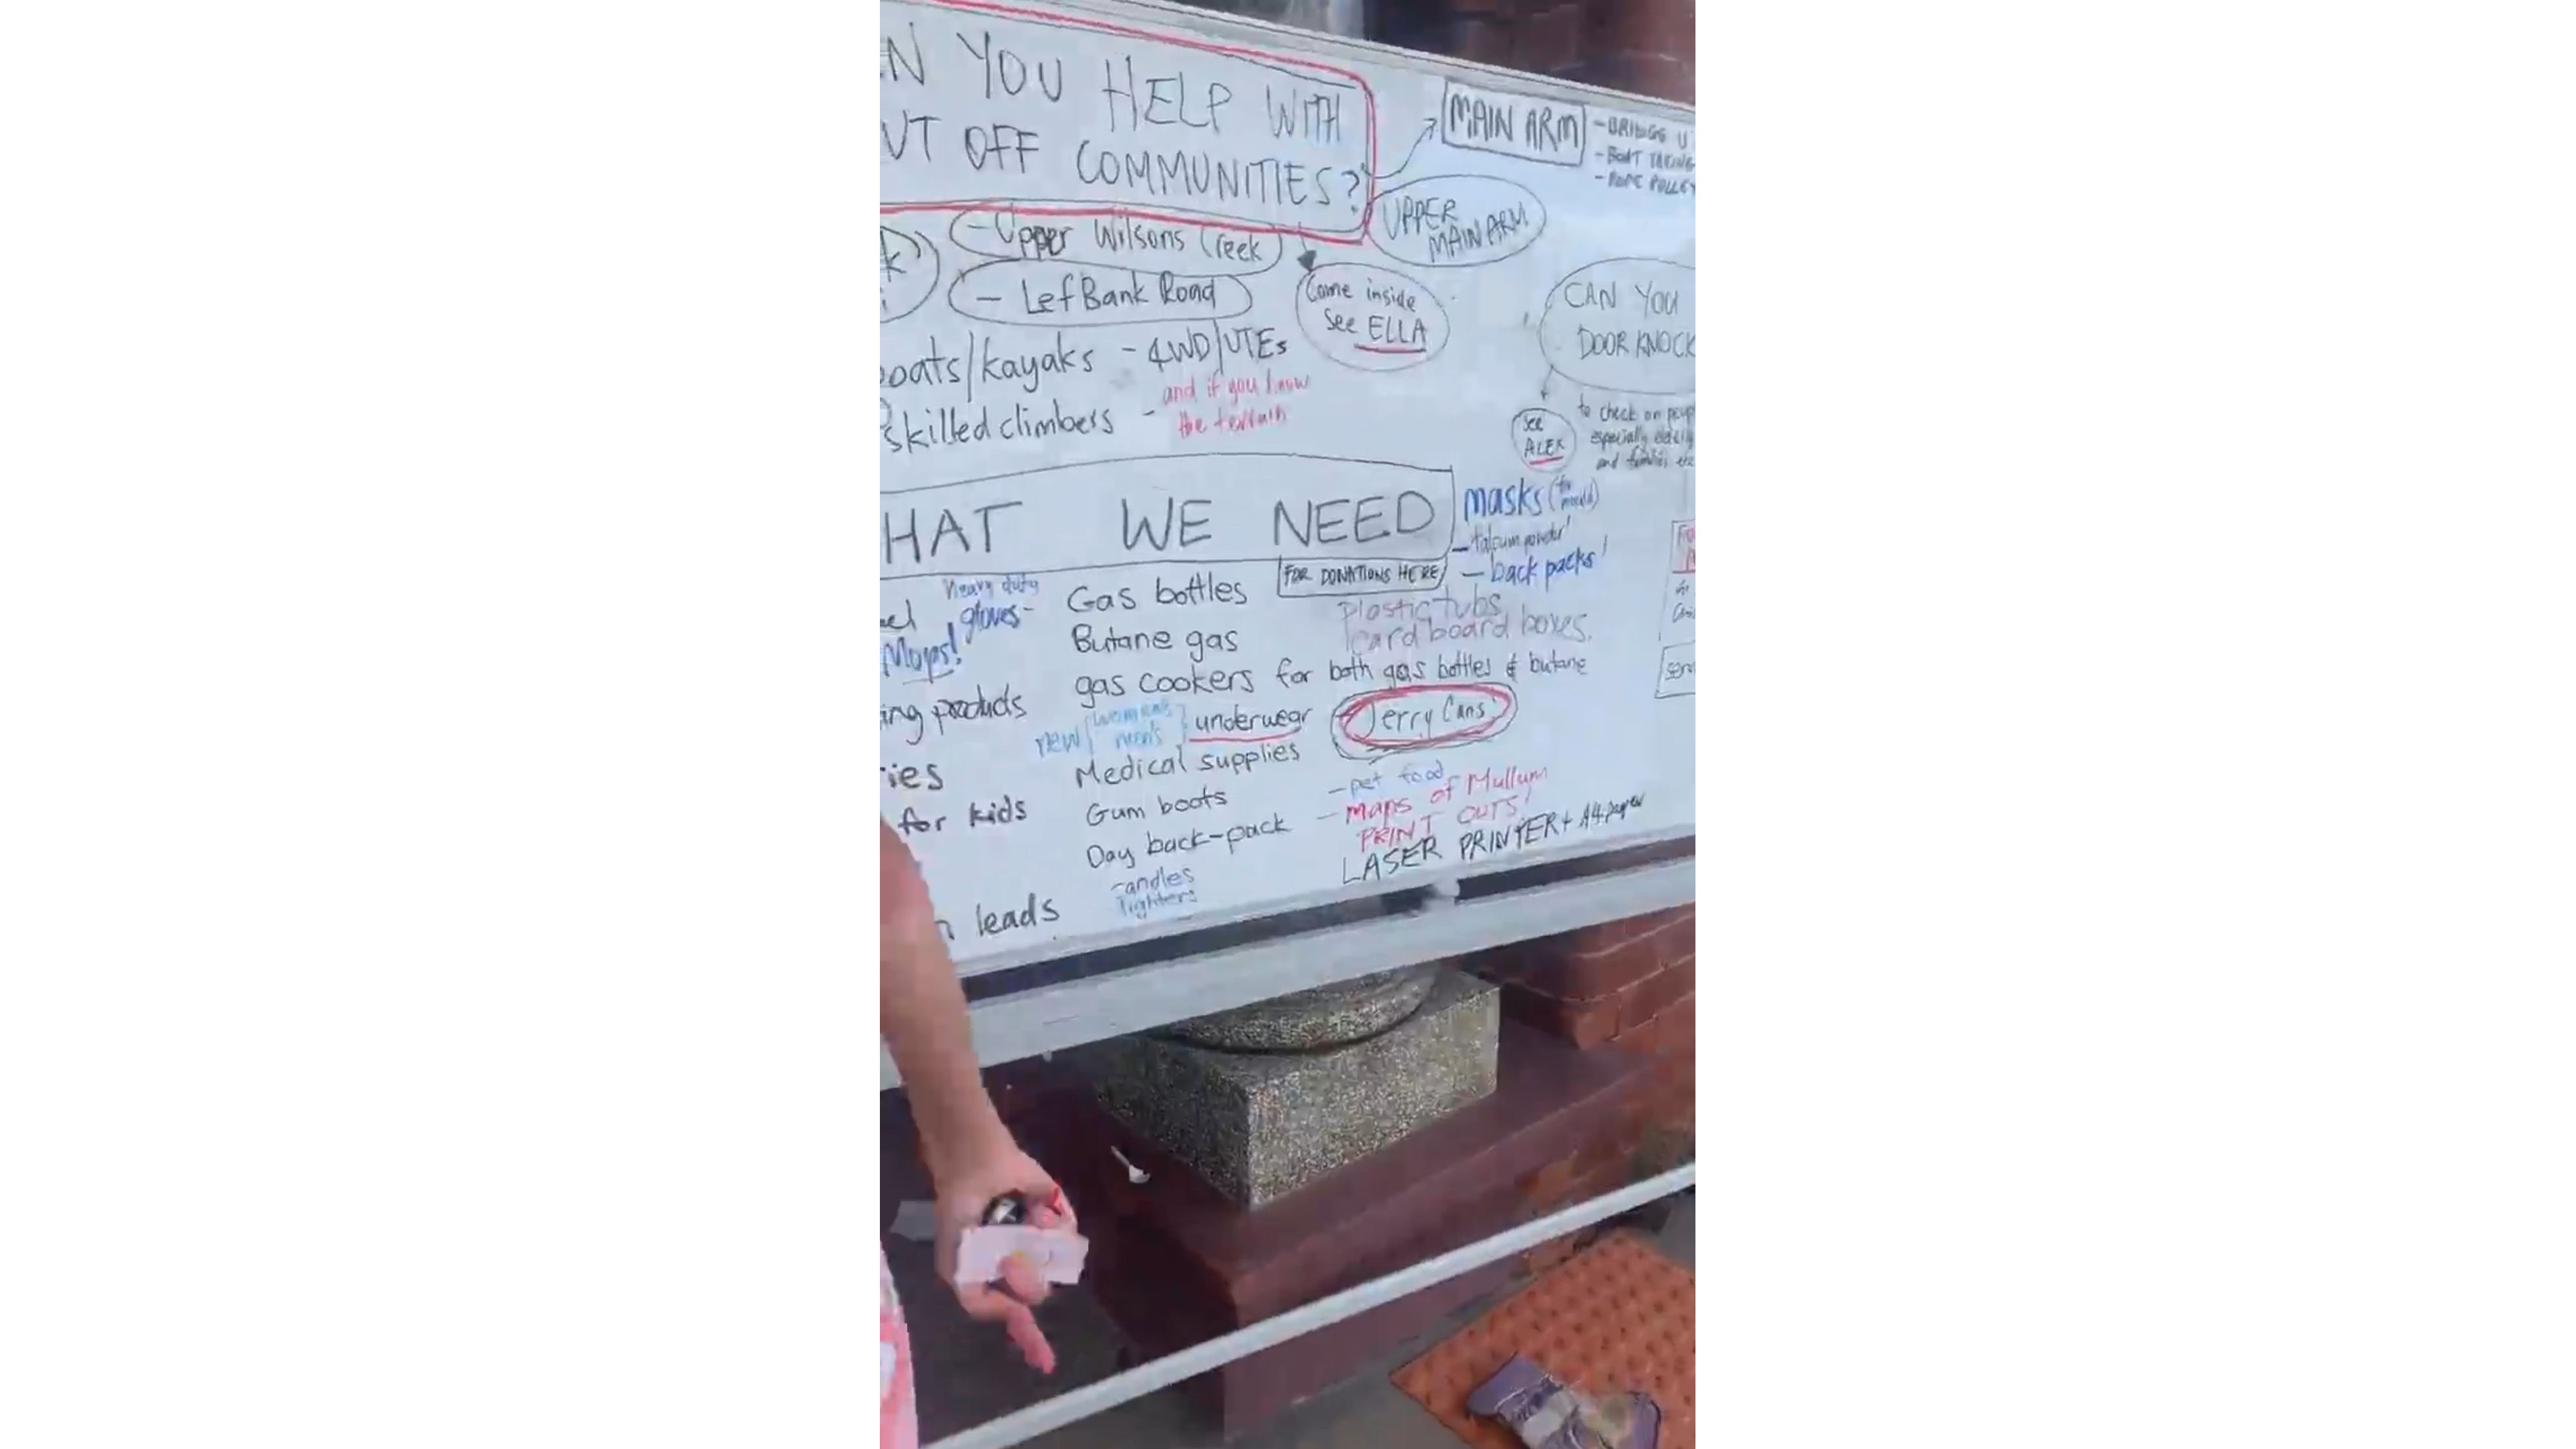 N YOU HELP WITH
UT OFF COMMUNITIES?
MAIN ARM
- BRIDGE U
- BOAT TAKING
- ROPE PULLEY
UPPER
MAIN ARM
- Upper Wilsons Creek
- Lef Bank Road
Come inside
See ELLA
CAN YOU
DOOR KNOCK
oats/kayaks - 4WD/UTEs
skilled climbers - and if you know
the terrain
See
ALEX
to check on peop
especially elderly
and families etc
HAT WE NEED
FOR DONATIONS HERE
masks (for mould)
- talcum powder!
- back packs!
heavy duty
gloves -
Mops!
ing products
ries
for kids
leads
Gas bottles
Butane gas
gas cookers for both gas bottles & butane
new women's men's underwear
Medical supplies
Gum boots
Day back-pack
candles
lighters
plastic tubs
cardboard boxes.
Jerry Cans
- pet food
- maps of Mullum
PRINT OUTS!
LASER PRINTER + A4 paper